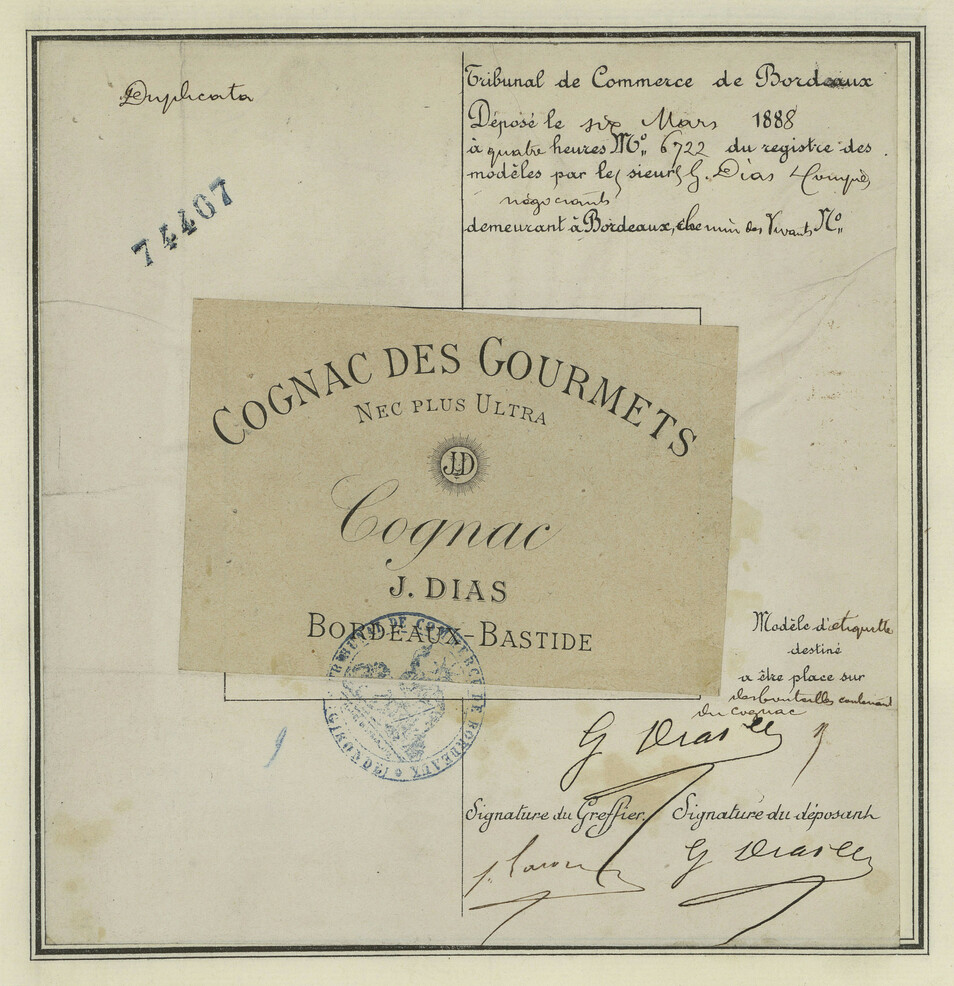 Duplicata
74407
Tribunal de Commerce de Bordeaux
Déposé le six Mars 1888
à quatre heures N° 6722 du registre des
modèles par les sieurs G. Dias
négociants
demeurant à Bordeaux, chemin des Vivants N°
COGNAC DES GOURMETS
NEC PLUS ULTRA
JD
Cognac
J. DIAS
BORDEAUX-BASTIDE
TRIBUNAL DE COMMERCE DE BORDEAUX (GIRONDE)
Modèle d'étiquette
destiné
a être place sur
des bouteilles contenant
du cognac
G Dias
Signature du Greffier. Signature du déposant
G Dias